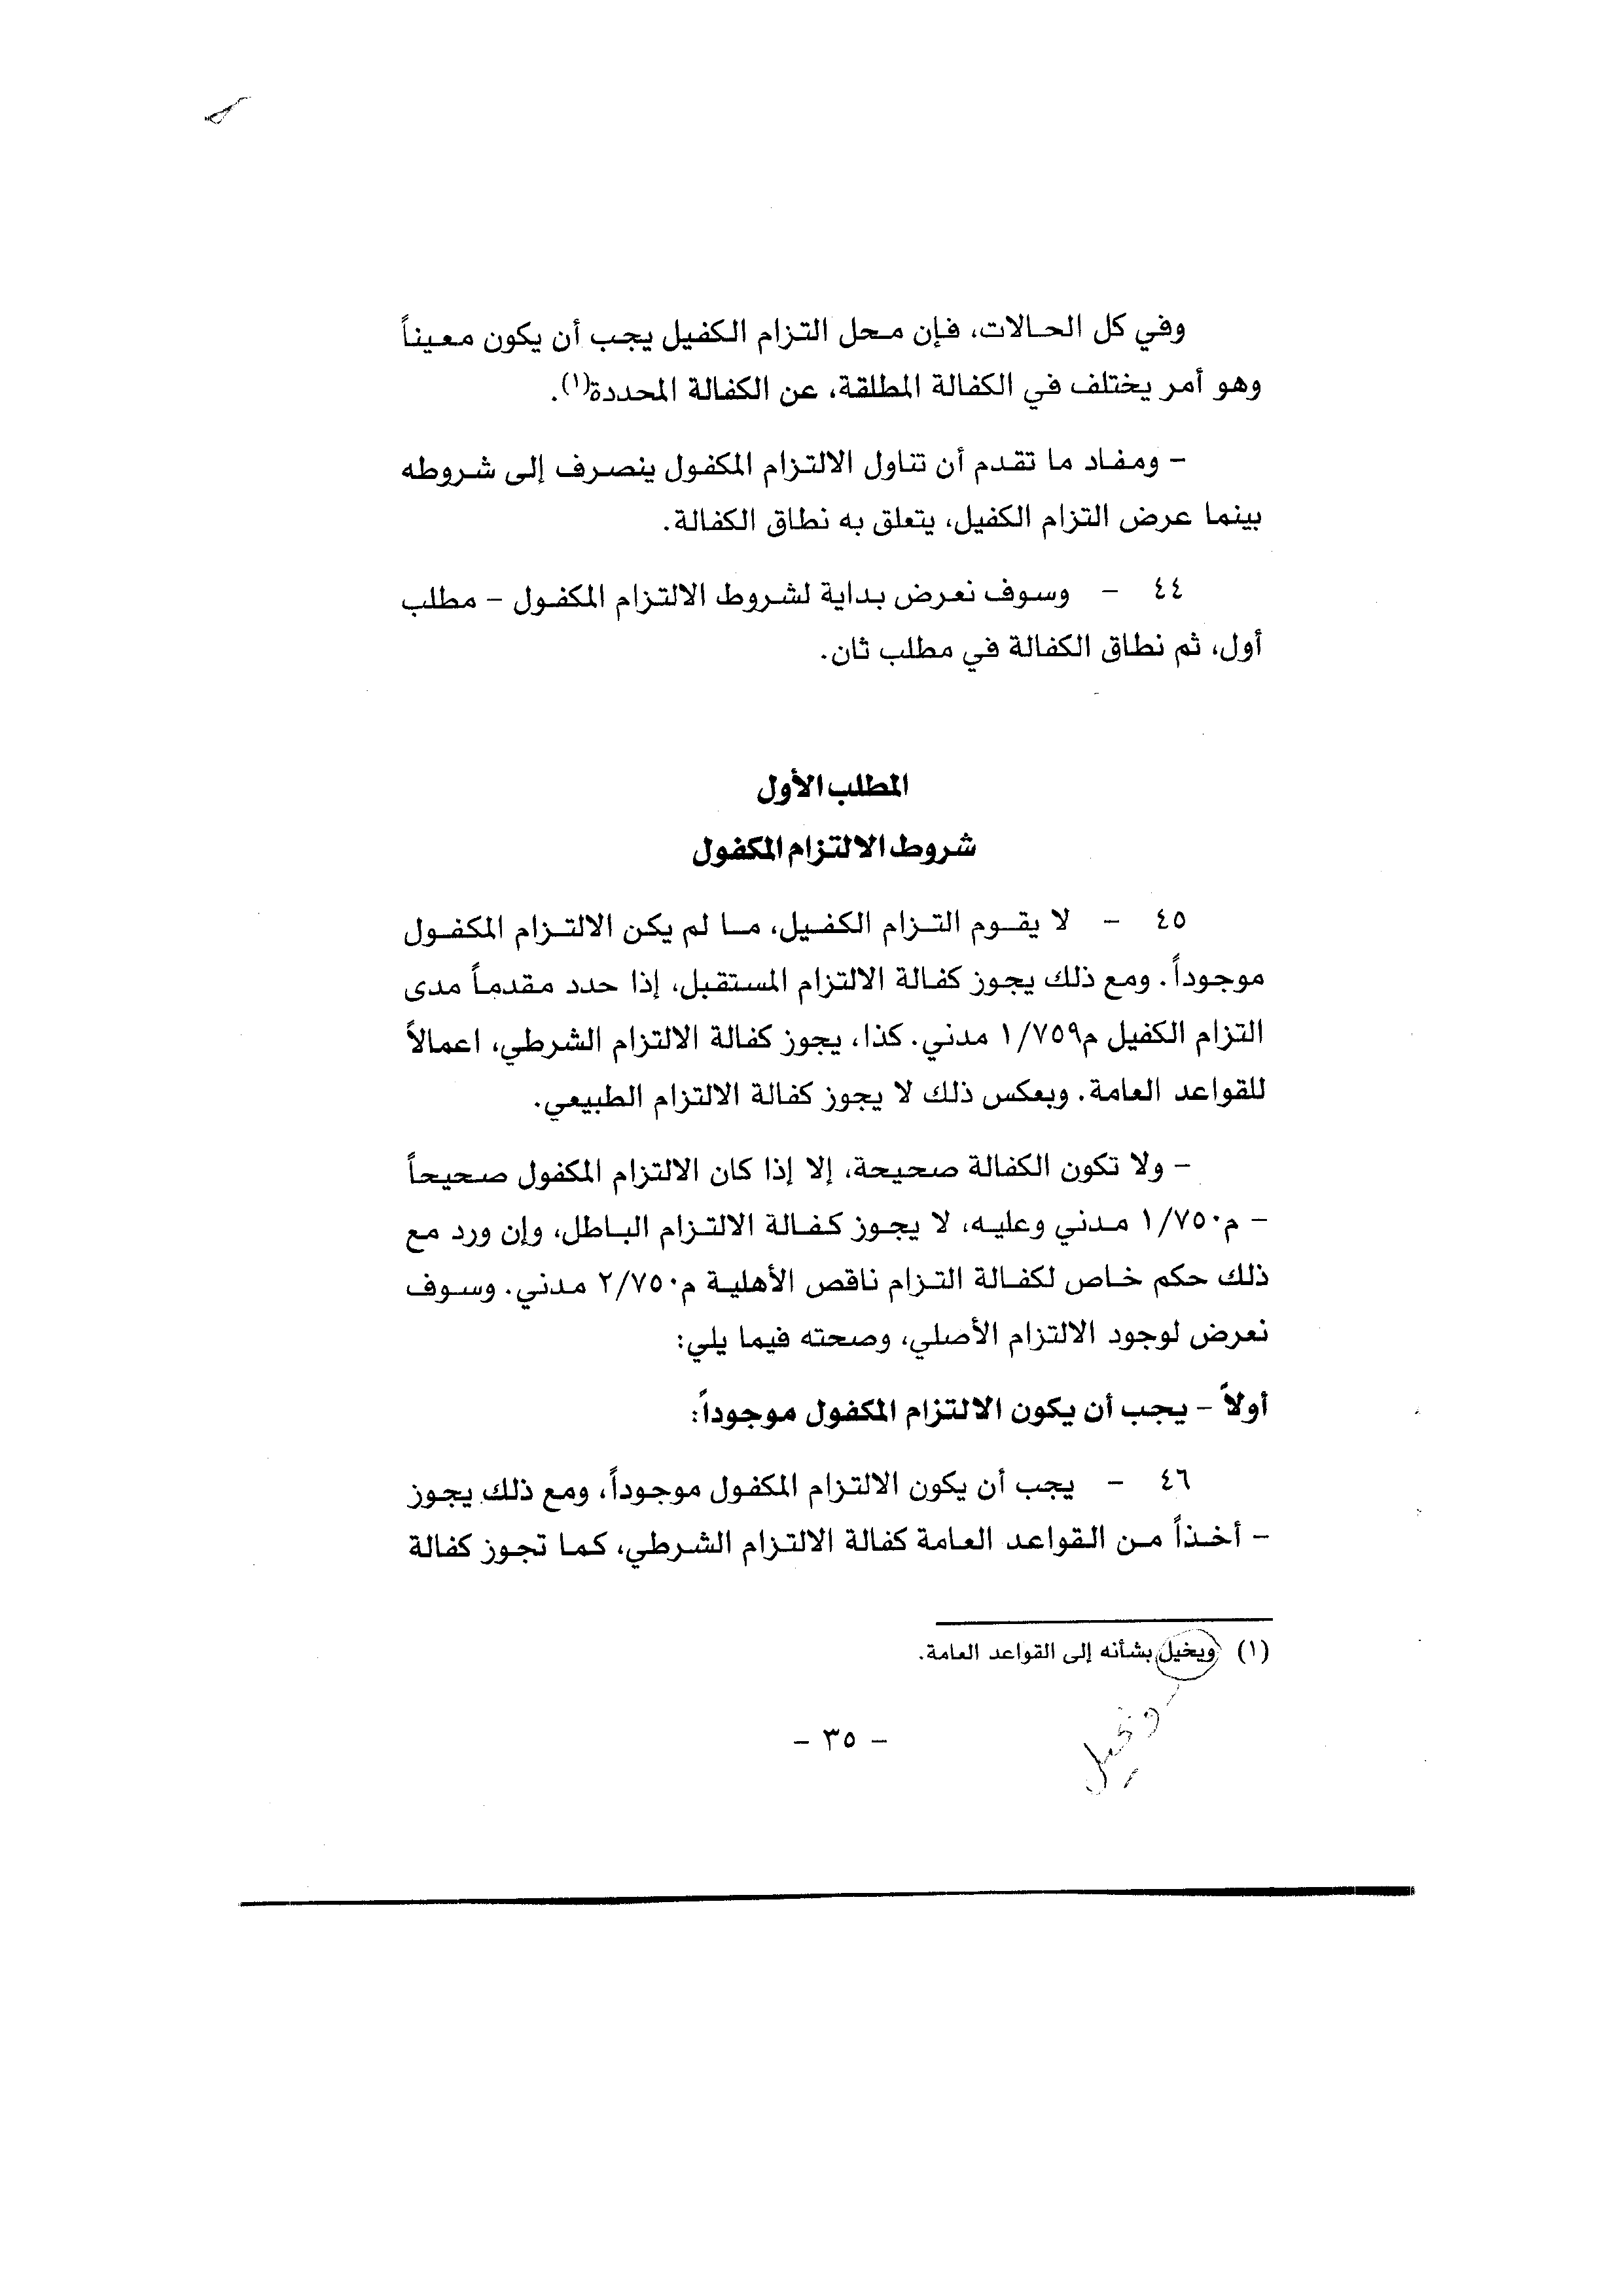 وفي كل الحالات، فإن محل التزام الكفيل يجب أن يكون معيناً
وهو أمر يختلف في الكفالة المطلقة، عن الكفالة المحددة(١).
– ومفاد ما تقدم أن تناول الالتزام المكفول ينصرف إلى شروطه
بينما عرض التزام الكفيل، يتعلق به نطاق الكفالة.
٤٤ – وسوف نعرض بداية لشروط الالتزام المكفول – مطلب
أول، ثم نطاق الكفالة في مطلب ثان.
المطلب الأول
شروط الالتزام المكفول
٤٥ – لا يقوم التزام الكفيل، ما لم يكن الالتزام المكفول
موجوداً. ومع ذلك يجوز كفالة الالتزام المستقبل، إذا حدد مقدماً مدى
التزام الكفيل م٧٥٩/١ مدني. كذا، يجوز كفالة الالتزام الشرطي، اعمالاً
للقواعد العامة. وبعكس ذلك لا يجوز كفالة الالتزام الطبيعي.
– ولا تكون الكفالة صحيحة، إلا إذا كان الالتزام المكفول صحيحاً
– م٧٥٠/١ مدني وعليه، لا يجوز كفالة الالتزام الباطل، وإن ورد مع
ذلك حكم خاص لكفالة التزام ناقص الأهلية م٧٥٠/٢ مدني. وسوف
نعرض لوجود الالتزام الأصلي، وصحته فيما يلي:
أولاً – يجب أن يكون الالتزام المكفول موجوداً:
٤٦ – يجب أن يكون الالتزام المكفول موجوداً، ومع ذلك يجوز
– أخذاً من القواعد العامة كفالة الالتزام الشرطي، كما تجوز كفالة
(١) ويخيل بشأنه إلى القواعد العامة.
ونحيل
– ٣٥ –